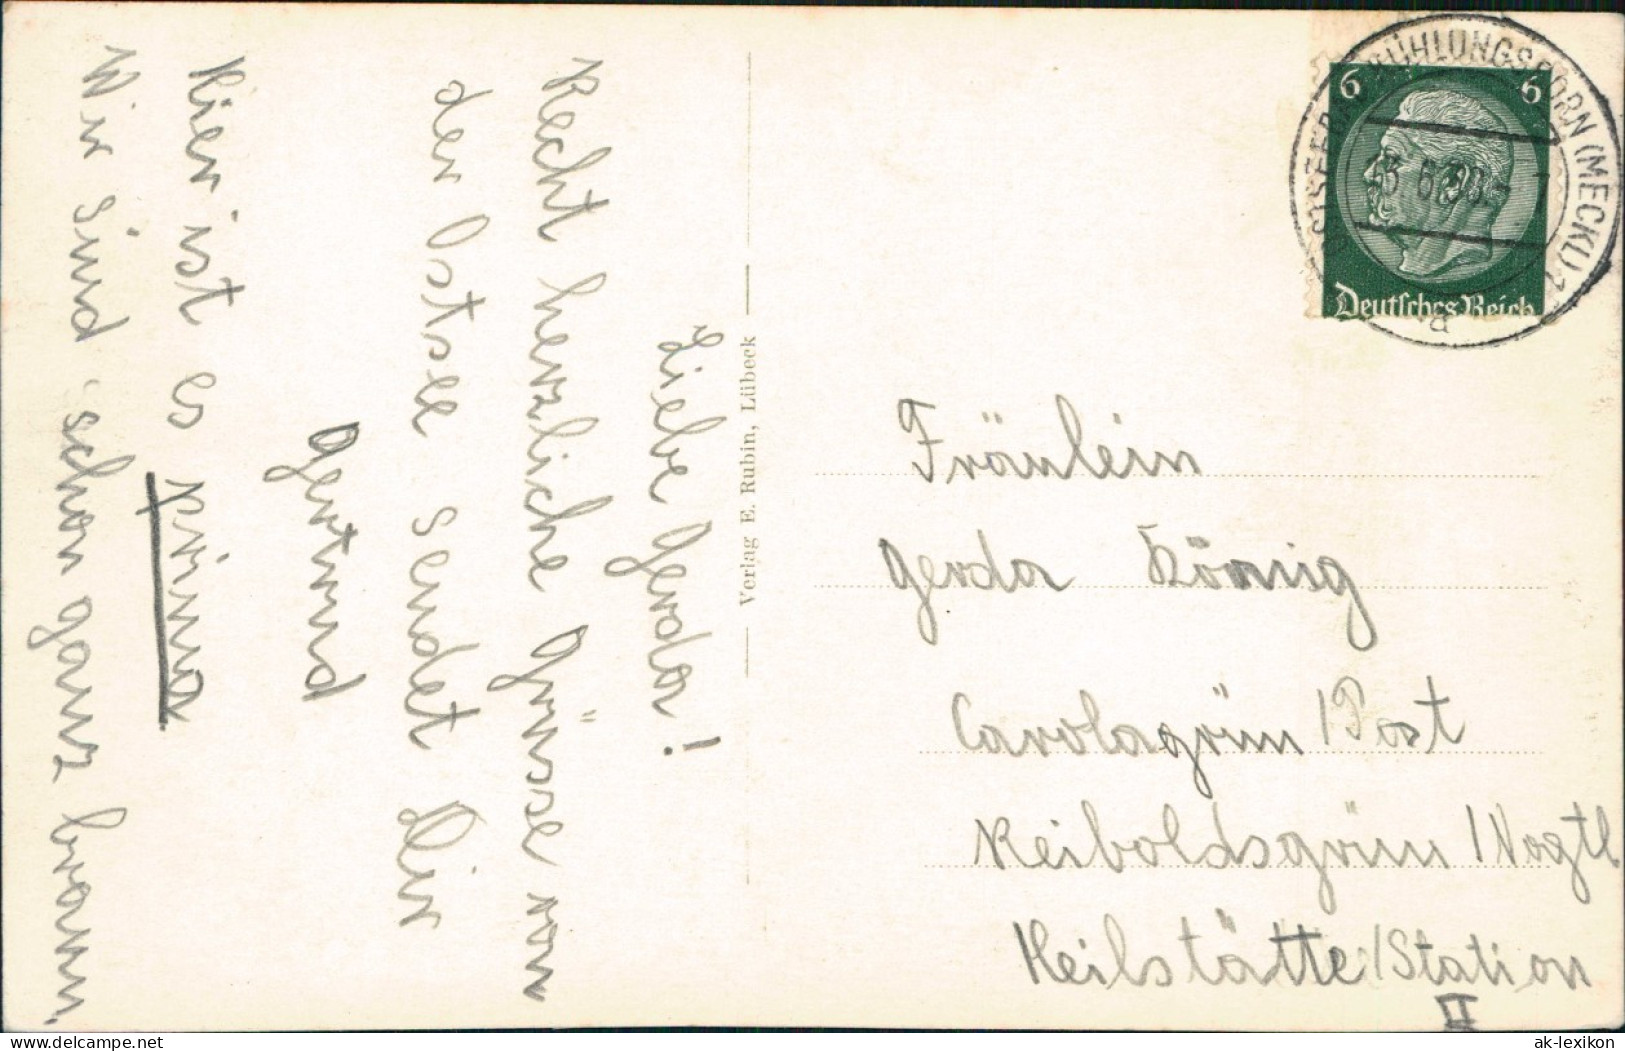 Liebe Gerda!
Recht herzliche Grüsse von
der Ostsee sendet Dir
Gertrud
Hier ist es prima
Wir sind schon ganz braun.
Verlag E. Rubin, Lübeck
6 6
Deutsches Reich
OSTSEEBAD KÜHLUNGSBORN (MECKL) 1
Fräulein
Gerda König
Carolagrün / Post
Reiboldsgrün / Vogtl
Heilstätte / Station
II
ak-lexikon